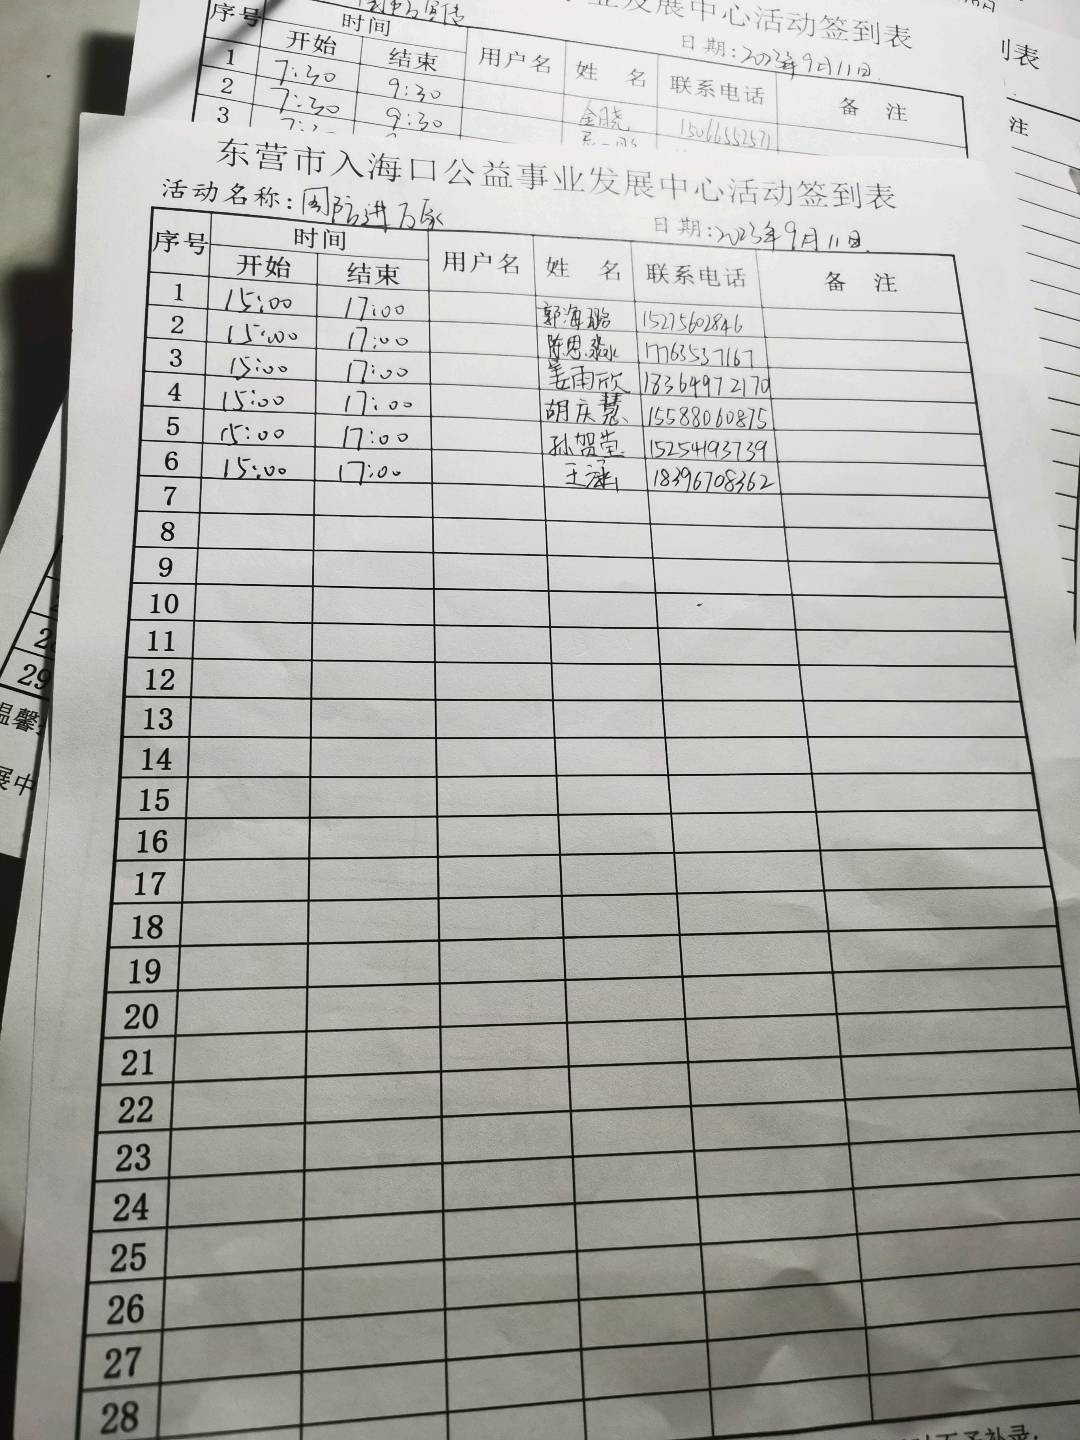 业发展中心活动签到表
日期:2023年9月11日.
序号 时间 用户名 姓 名 联系电话 备 注
开始 结束
1 7:30 9:30 金晓 15066552571
2 7:30 9:30
3
到表
注
东营市入海口公益事业发展中心活动签到表
活动名称:国防进万家 日期:2023年9月11日.
序号 时间 用户名 姓 名 联系电话 备 注
开始 结束
1 15:00 17:00 郭海鹏 15275602846
2 15:00 17:00 陈思淼 17763537167
3 15:00 17:00 姜雨欣 18364972170
4 15:00 17:00 胡庆慧 15588060875
5 15:00 17:00 孙贺莹 15254193739
6 15:00 17:00 王涵 18396708362
7
8
9
10
11
12
13
14
15
16
17
18
19
20
21
22
23
24
25
26
27
28
29
温馨
展中
不予补录.